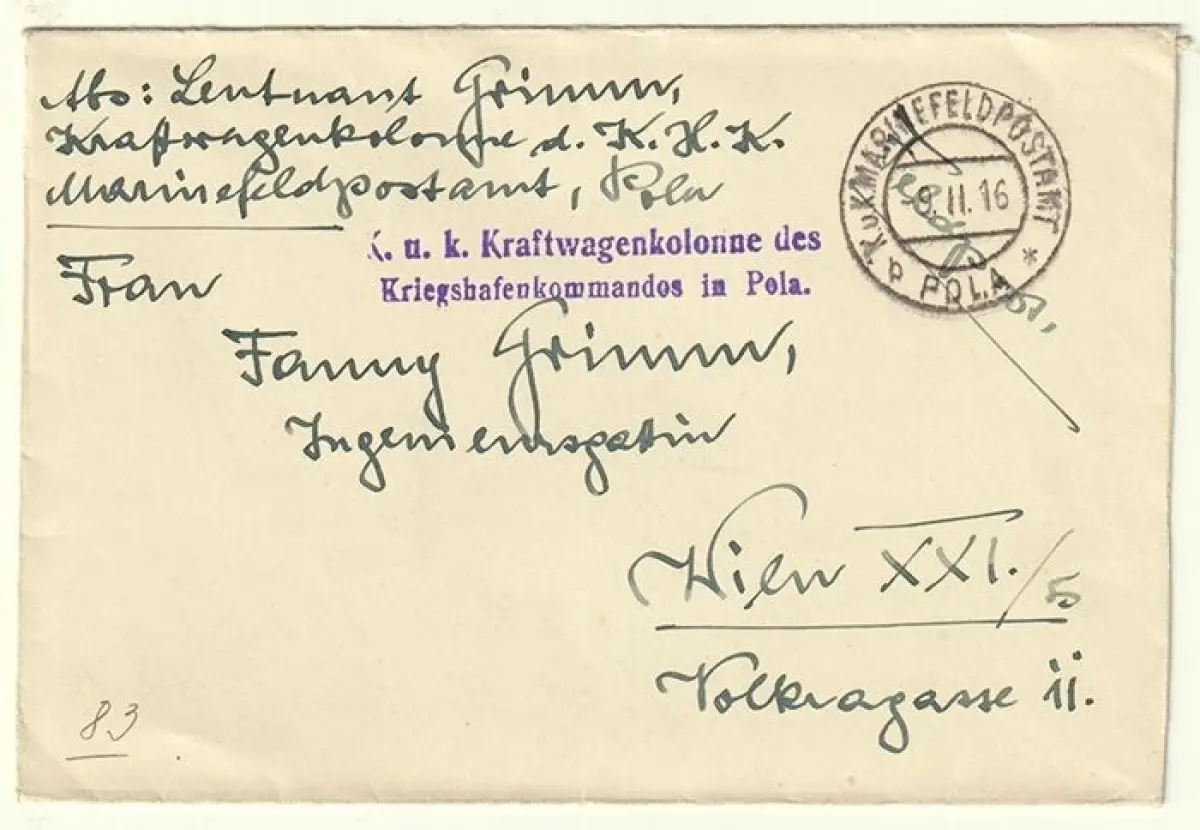 Abs: Leutnant Grimm,
Kraftwagenkolonne d. K. H. K.
Marinefeldpostamt, Pola
K. u. k. Kraftwagenkolonne des
Kriegshafenkommandos in Pola.
K.u.K. MARINEFELDPOSTAMT
9. II. 16
b POLA *
Frau
Fanny Grimm,
Ingenieursgattin
Wien XXI./5
Volkragasse 11.
83